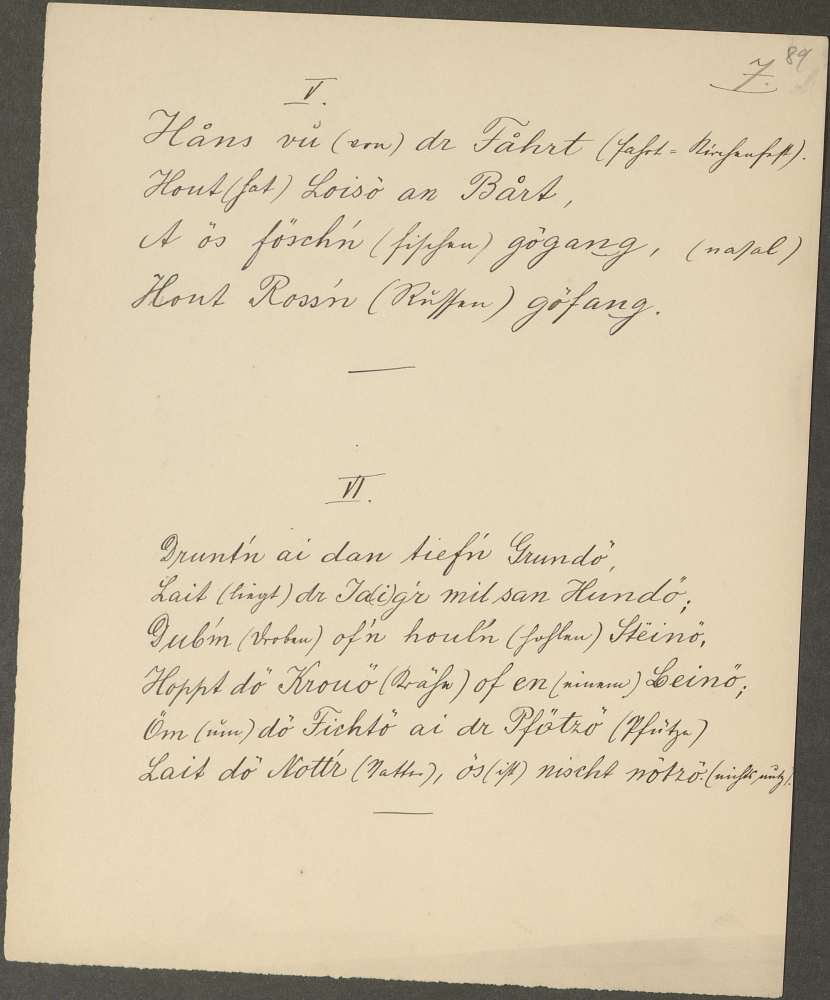 89
7.
V.
Håns vů (von) dr Fåhrt (fahrt = Kirchenfest).
Hout (hat) Loisö an Bårt,
A ös föschń (fischen) gögang, (nasal)
Hout Rossń (Russen) göfang.
VI.
Druntń ai dan tiefń Grundö,
Lait (liegt) dr Ja(i)gŕ mit san Hundö;
Dubḿ (droben) ofń houlń (hohlen) Stëinö,
Hoppt dö Krouö (Krähe) of en (einem) Beinö;
Öm (um) dö Fichtö ai dr Pfötzö (Pfütze)
Lait dö Nottŕ (Natter), ös (ist) nischt nötzö. (nichts nütz).